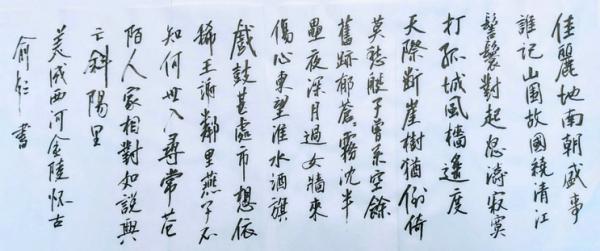 佳麗地南朝盛事
誰記山圍故國繞清江
髻鬟對起怒濤寂寞
打孤城風檣遙度
天際斷崖樹猶倒倚
莫愁艇子曾系空餘
舊跡郁蒼々霧沈半
壘夜深月過女牆來
傷心東望淮水酒旗
戲鼓甚處市想依
稀王謝鄰里燕子不
知何世入尋常巷
陌人家相對如說興
亡斜陽里
美成西河金陵懷古
俞仁書